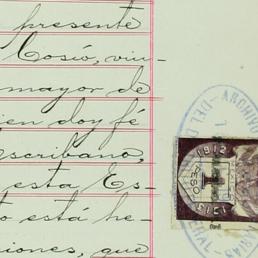 presente
Cosío, viu-
mayor de
ien doy fé
escribano,
esta Es-
to está he-
iones, que
ARCHIVO
1912 1913
1
PESO